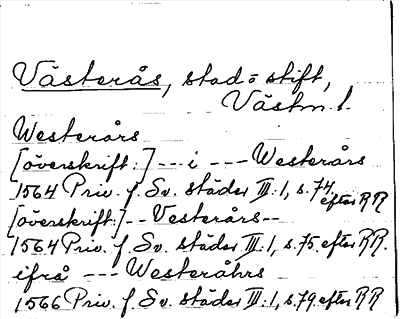 Västerås, stad o stift,
Västm. l.
Westerårs
[överskrift:] --- i --- Westerårs
1564 Priv. f. Sv. städer III:1, s. 74. efter RR
[överskrift:] -- Vesterårs --
1564 Priv. f. Sv. städer III:1, s. 75. efter RR.
ifrå --- Westeråhrs
1566 Priv. f. Sv. städer III:1, s. 79 efter RR